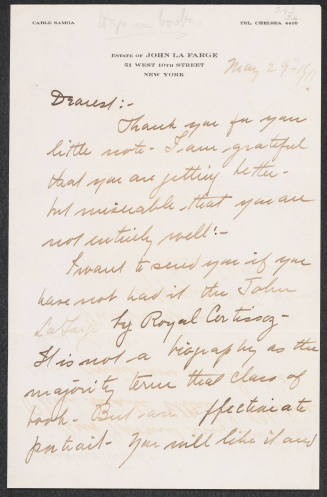 CABLE SAMOA
TEL. CHELSEA 4400
ESTATE OF JOHN LA FARGE
51 WEST 10TH STREET
NEW YORK
May 29th
Dearest:-
Thank you for your
little note - I am grateful
that you are getting better -
but miserable that you are
not entirely well!-
I want to send you if you
have not had it the John
La Farge by Royal Cortissoz -
It is not a biography as the
majority term that class of
book - But an affectionate
portrait - You will like it and